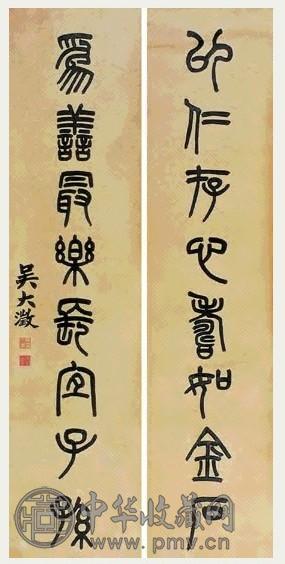 以仁存心壽如金石
爲善最樂長宜子孫
吳大澂
中华收藏网
www.pmv.cn